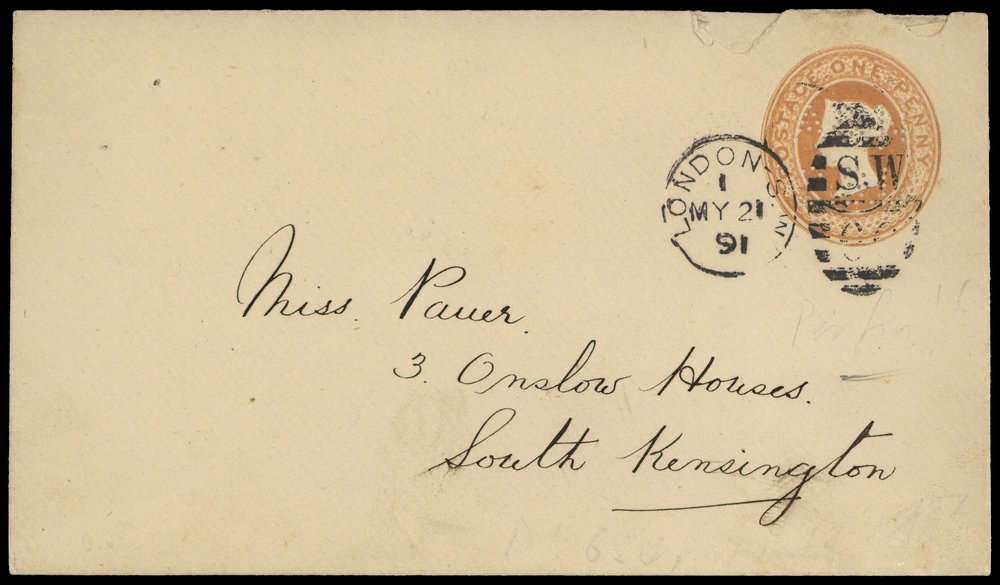 POSTAGE ONE PENNY
LONDON·S.W
1
MY 21
91
S.W
Miss. Pauer.
3. Onslow Houses.
South Kensington